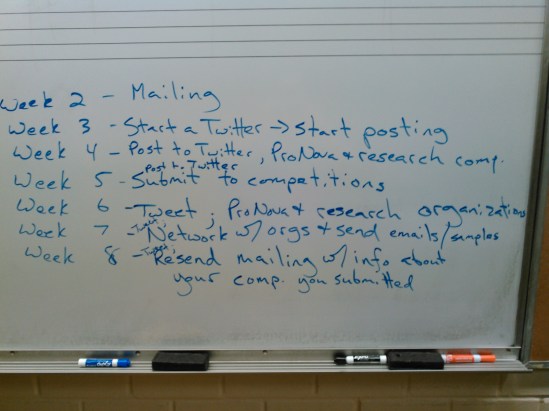 Week 2 - Mailing
Week 3 - Start a Twitter → Start posting
Week 4 - Post to Twitter, ProNova & research comp.
post to Twitter
Week 5 - Submit to competitions
Week 6 - Tweet; ProNova & research organizations
Week 7 - Network w/ orgs & send emails/samples
Week 8 - Resend mailing w/ info about
your comp. you submitted